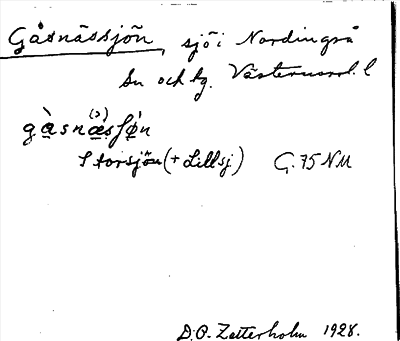 Gåsnässjön, sjö i Nordingrå
sn och tg. Västernorrl. l
gàsnæ̀sʃø̀n
Storsjön (+ Lillsj) G. 75 NM
D. O. Zetterholm 1928.